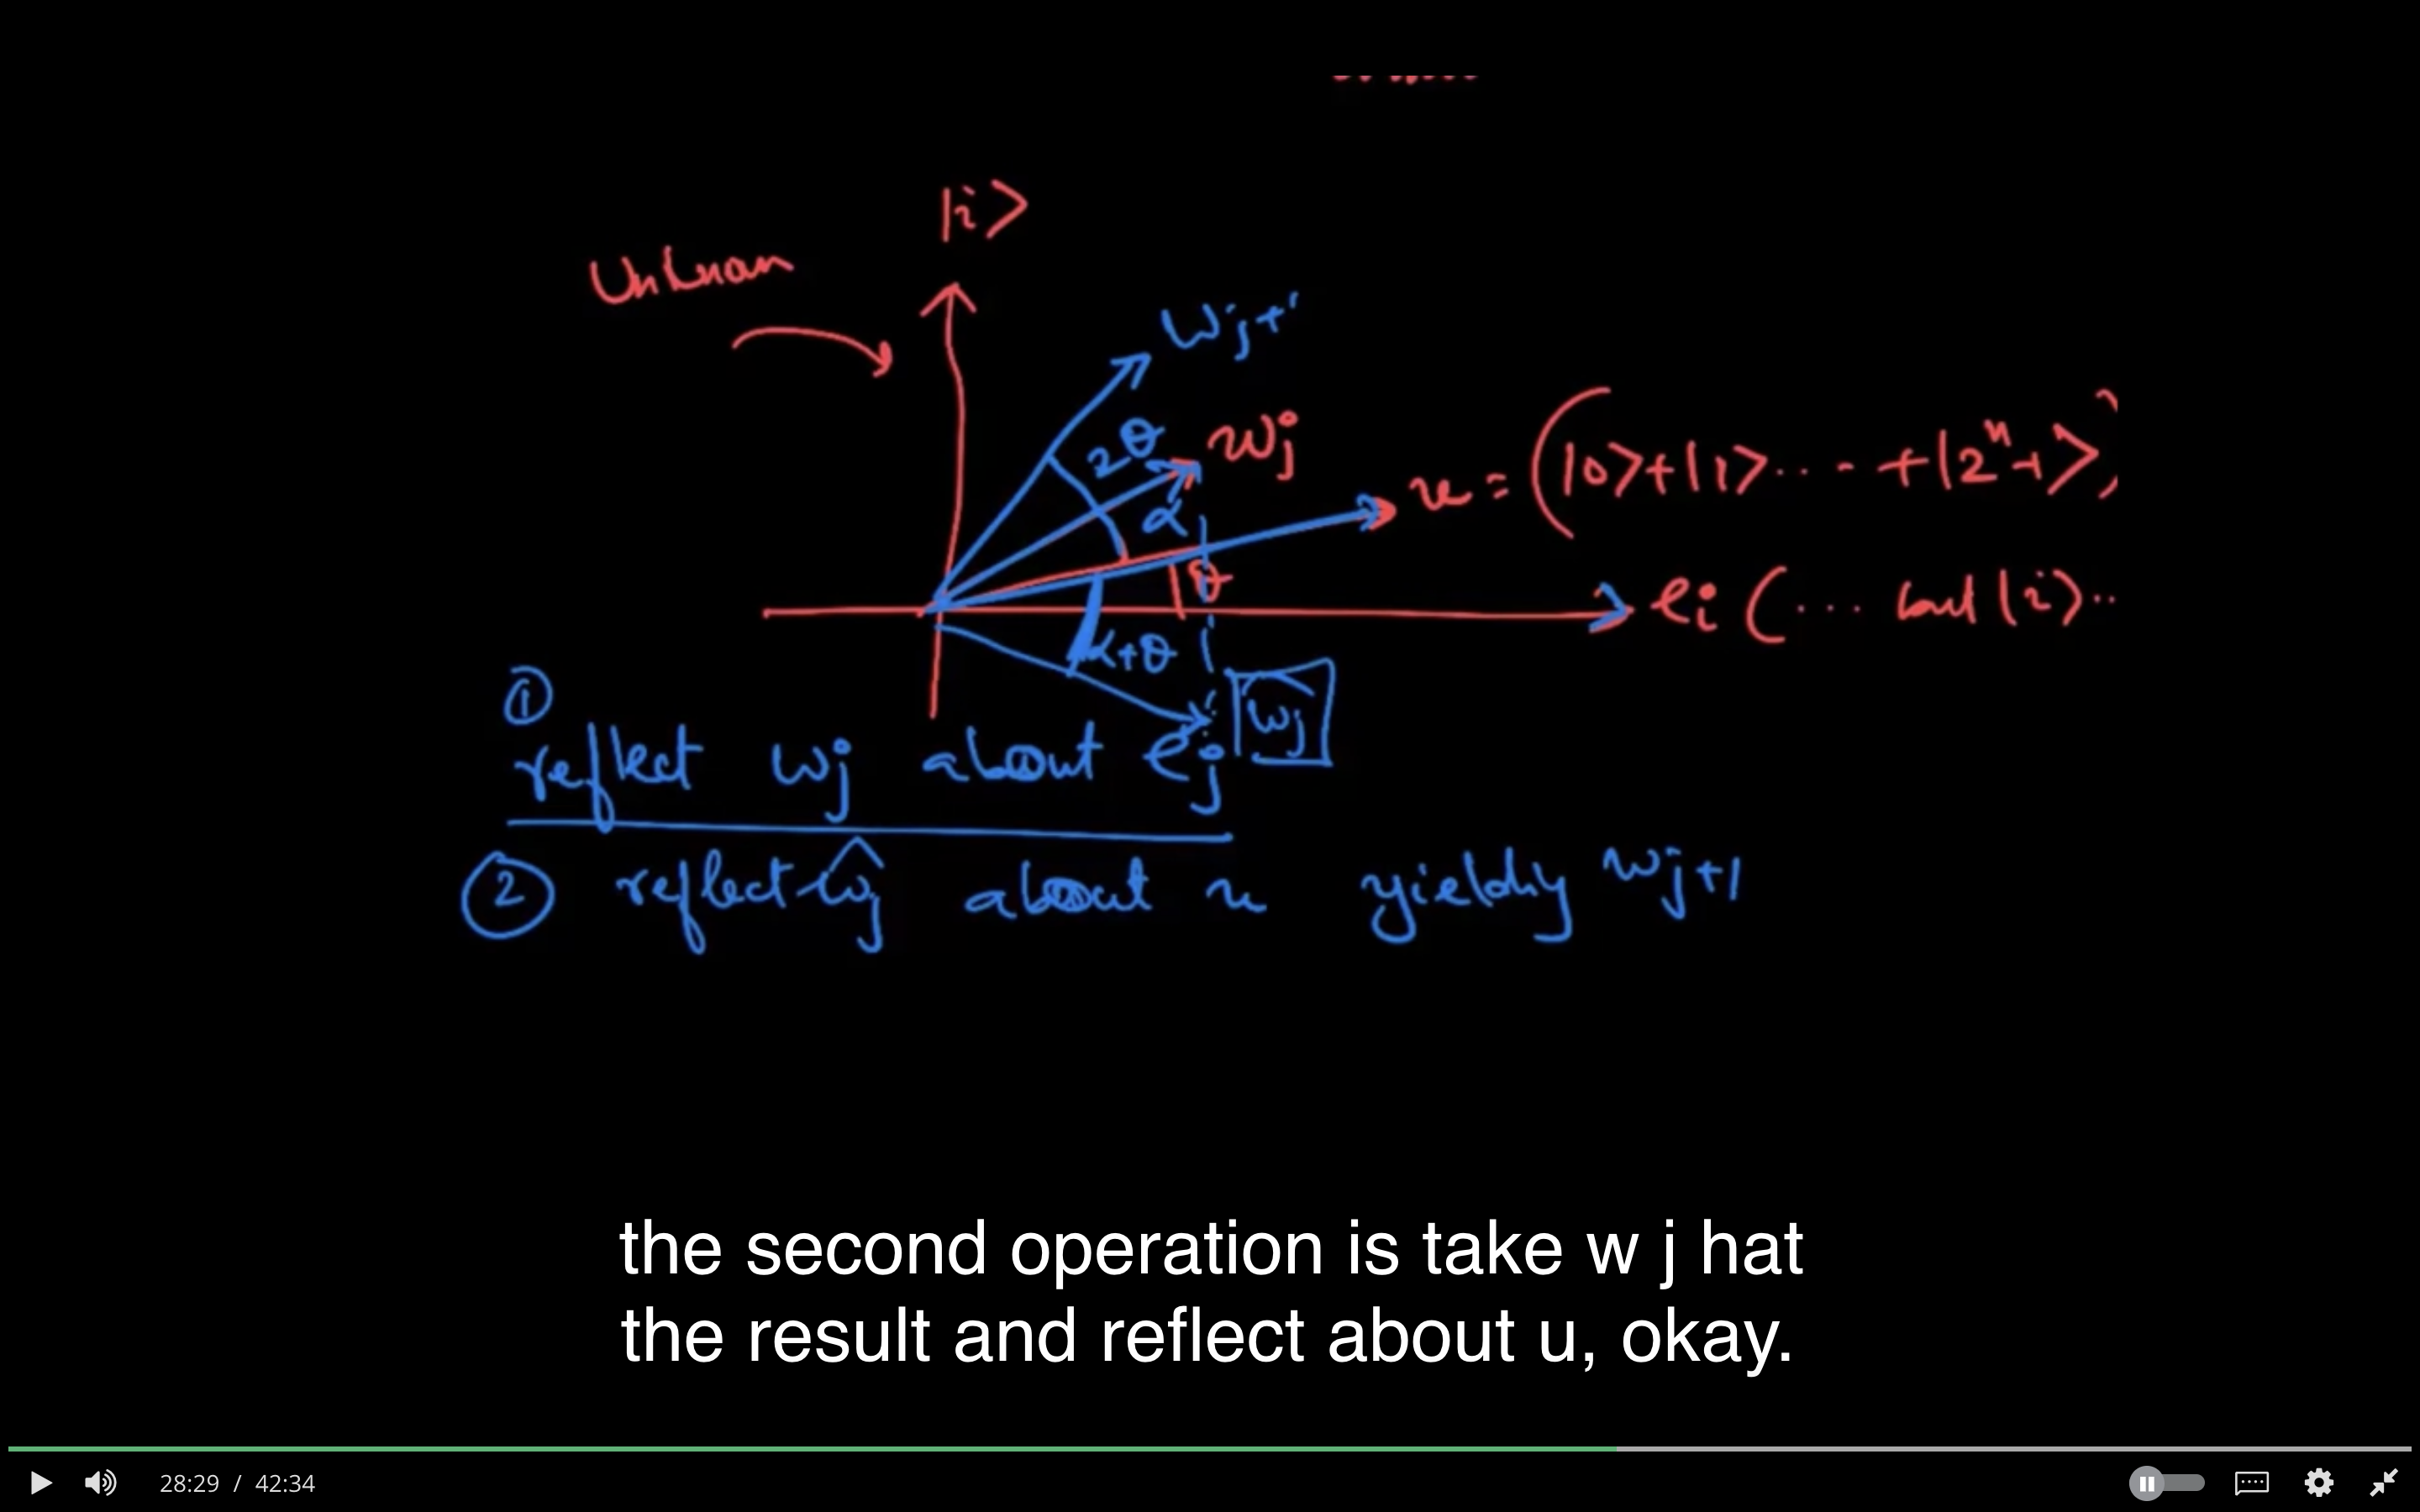 |i>
Unknan
wj+1
2θ
wj
α
u = (|0>+|1>....+|2ⁿ-1>)
θ
ei (... but |i>..
α+θ
ŵj
①
reflect wj about ej
② reflect ŵj about u yieldy wj+1
the second operation is take w j hat
the result and reflect about u, okay.
28:29 / 42:34